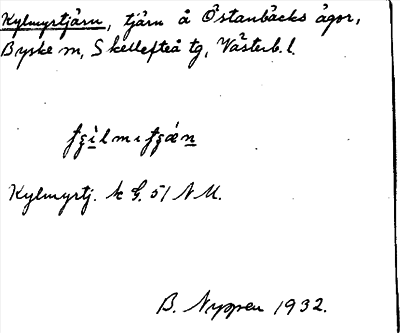 Kylmyrtjärn, tjärn å Östanbäcks ägor,
Byske sn, Skellefteå tg, Västerb. l.
Kylmyrtj. k G. 51 N M.
B. Nyppen 1932.